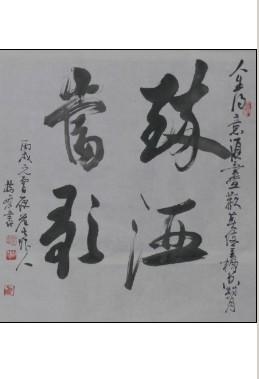 人生得意須盡歡莫使金樽空對月
對酒
當歌
丙戌元宵夜
書